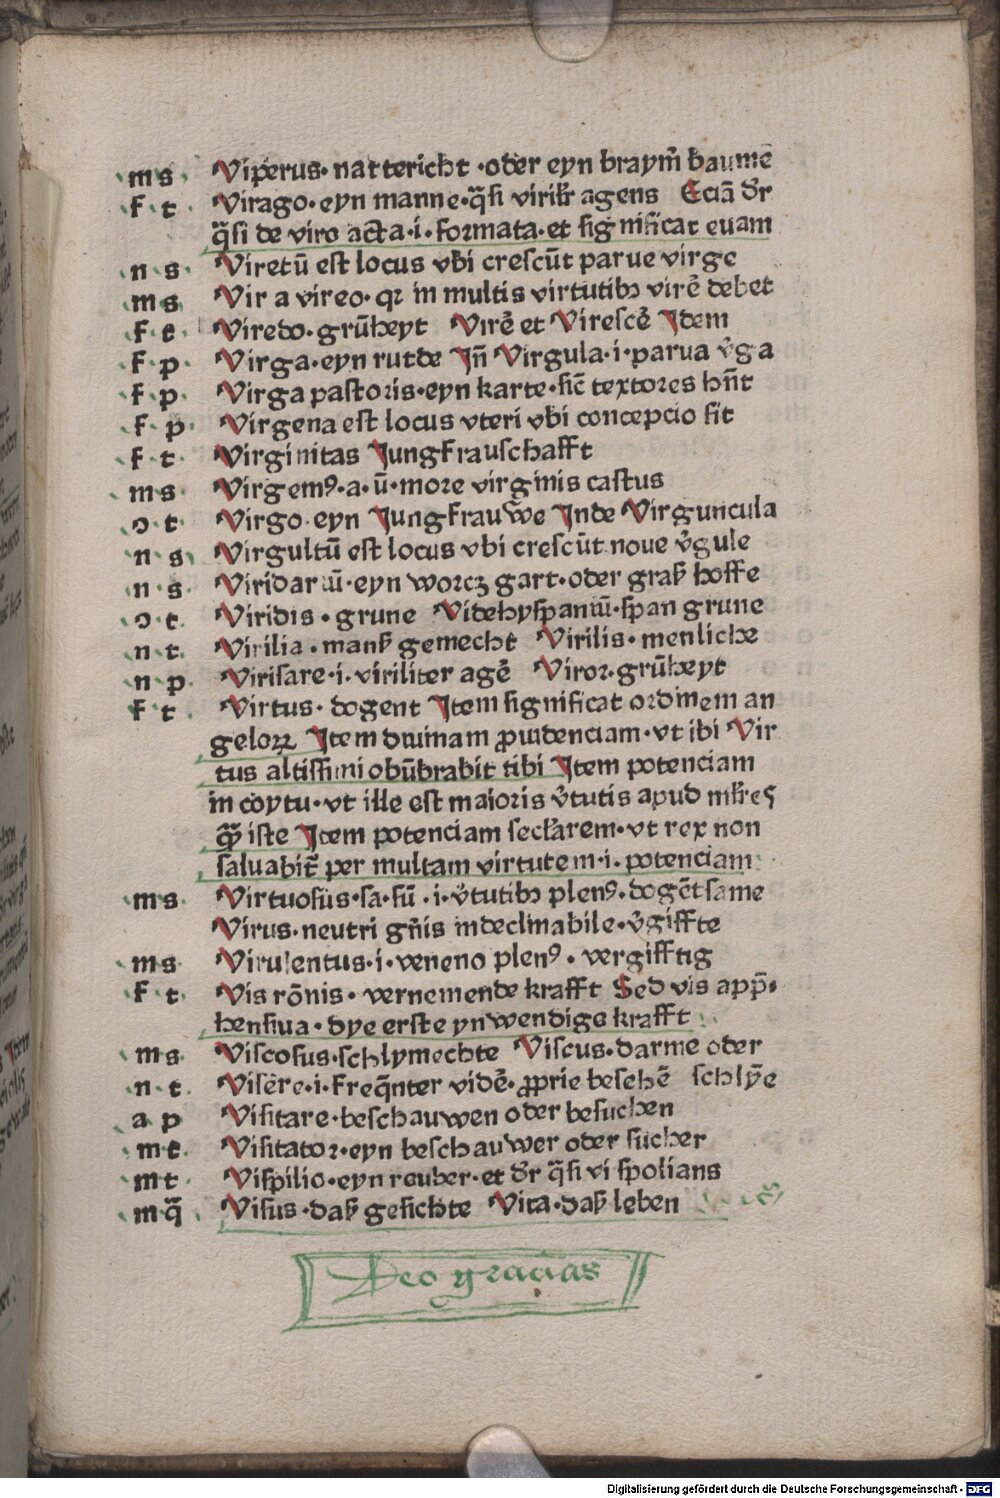 m s Viperus· nattericht ·oder eyn braym̄ baume
f t Virago·eyn manne·q̄si virilr̄ agens Eciā dr̄
q̄si de viro acta·i·formata·et significat euam
n s Viretū est locus vbi crescūt parue virge
m s Vir a vireo·qꝛ in multis virtutibꝫ virē debet
f t Viredo·grūheyt Virē et Virescē Idem
f p Virga·eyn rutde Jn̄ Virgula·i·parua v̓ga
f p Virga pastoris·eyn karte·sic̄ textores hn̄t
f p Virgena est locus vteri vbi concepcio fit
f t Virginitas Jungfrauschafft
m s Virgemꝰ·a·ū·more virginis castus
ↄ t Virgo eyn Jungfrauwe Jnde Virguncula
n s Virgultū est locus vbi crescūt noue v̓gule
n s Viridariū·eyn worcz gart·oder graß hoffe
ↄ t Viridis·grune Videhyspaniū·span grune
n t Virilia·manß gemecht Virilis·menliche
n p Virisare·i·viriliter agē Viror·grūheyt
f t Virtus·dogent Jtem significat ordinem an
gelorꝝ Jtem diuinam ꝓuidenciam·vt ibi Vir
tus altissimi obūbrabit tibi Jtem potenciam
in coytu·vt ille est maioris v̓tutis apud mlr̄es
q̄ꝫ iste Jtem potenciam secl̄arem·vt rex non
saluabit̄ per multam virtutem·i·potenciam
m s Virtuosus·sa·sū·i·v̓tutibꝫ plenꝰ·dogētsame
Virus·neutri gn̄is indeclinabile·v̓giffte
m s Virulentus·i·veneno plenꝰ·vergifftig
f t Vis rōnis·vernemende krafft Sed vis app̄·
hensiua·dye erste ynwendige krafft
m s Viscosus·schlymechte Viscus·darme oder
n t Visēre·i·freq̄nter vidē·ꝓprie besehē schlym̄e
a p Visitare·beschauwen oder besuchen
m t Visitator·eyn beschauwer oder sucher
m t Vispilio·eyn reuber·et dr̄ q̄si vi spolians
m q̄ Visus·daß gesichte Vita·daß leben
Deo gracias
Digitalisierung gefördert durch die Deutsche Forschungsgemeinschaft · DFG